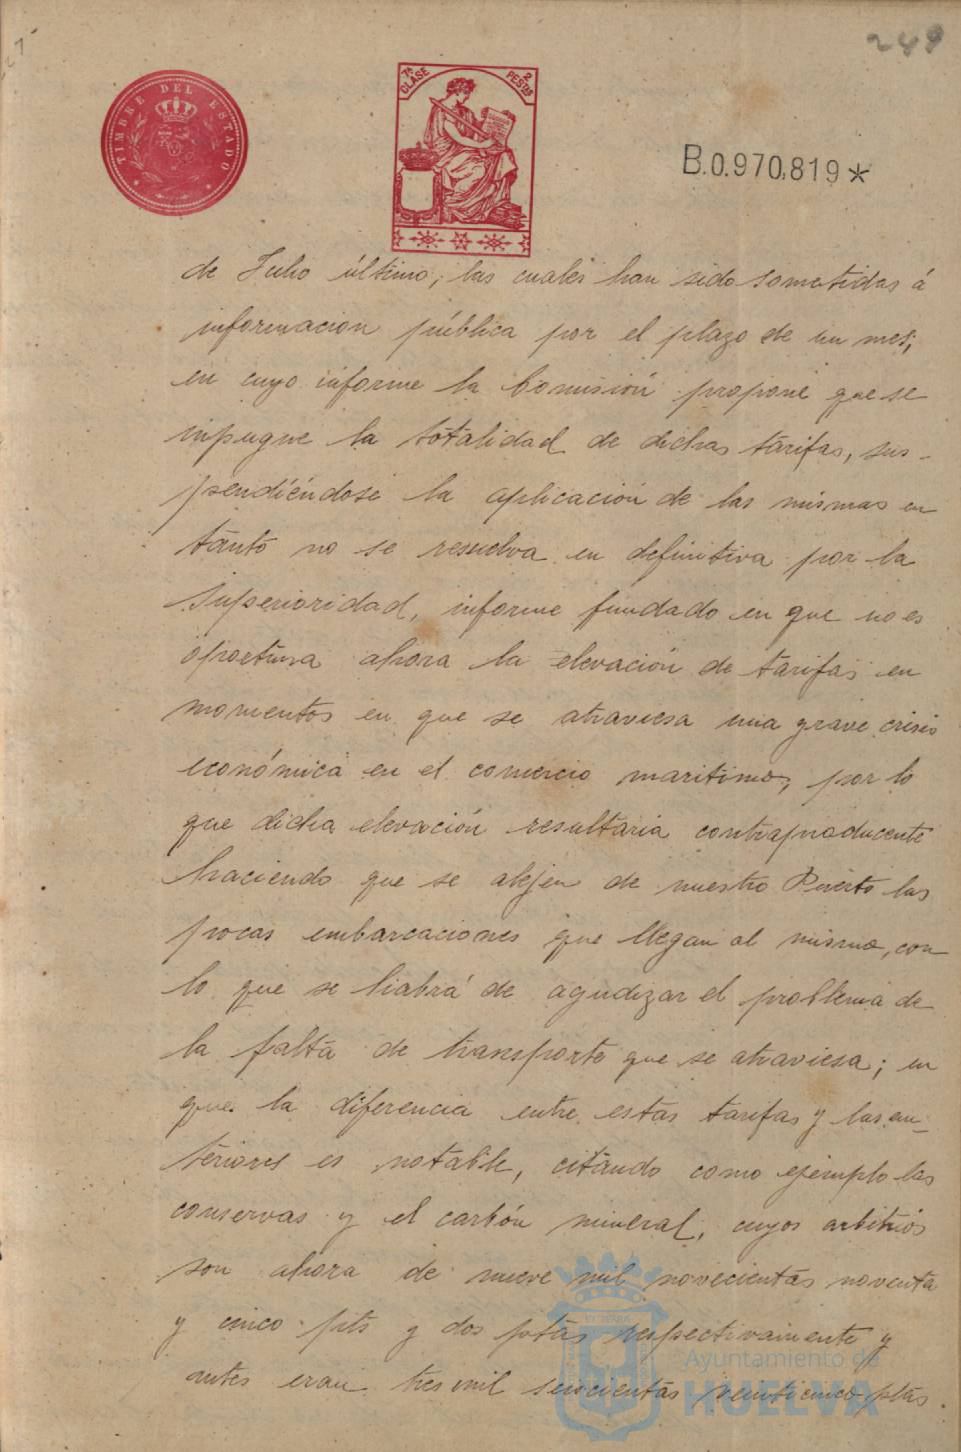 249
TIMBRE DEL ESTADO
7ª CLASE
2 PESTAS
B.0.970,819*
de Julio último, las cuales han sido sometidas á
informacion pública por el plazo de un mes,
en cuyo informe la Comisión propone que se
inpugne la totalidad de dichas tarifas, sus-
pendiéndose la aplicación de las mismas en
tanto no se resuelva en definitiva por la
Superioridad, informe fundado en que no es
oportuna ahora la elevación de tarifas en
momentos en que se atraviesa una grave crisis
económica en el comercio maritimo, por lo
que dicha elevación resultaria contraproducente
haciendo que se alejen de nuestro Puerto las
pocas embarcaciones que llegan al mismo, con
lo que se habrá de agudizar el problema de
la falta de transporte que se atraviesa; en
que la diferencia entre estas tarifas y las an-
teriores es notable, citando como ejemplo las
conservas y el carbón mineral, cuyos arbitrios
son ahora de nueve mil novecientas noventa
y cinco pts y dos ptas respectivamente y
antes eran tres mil seiscientas veinticinco ptas.
Ayuntamiento de
HUELVA